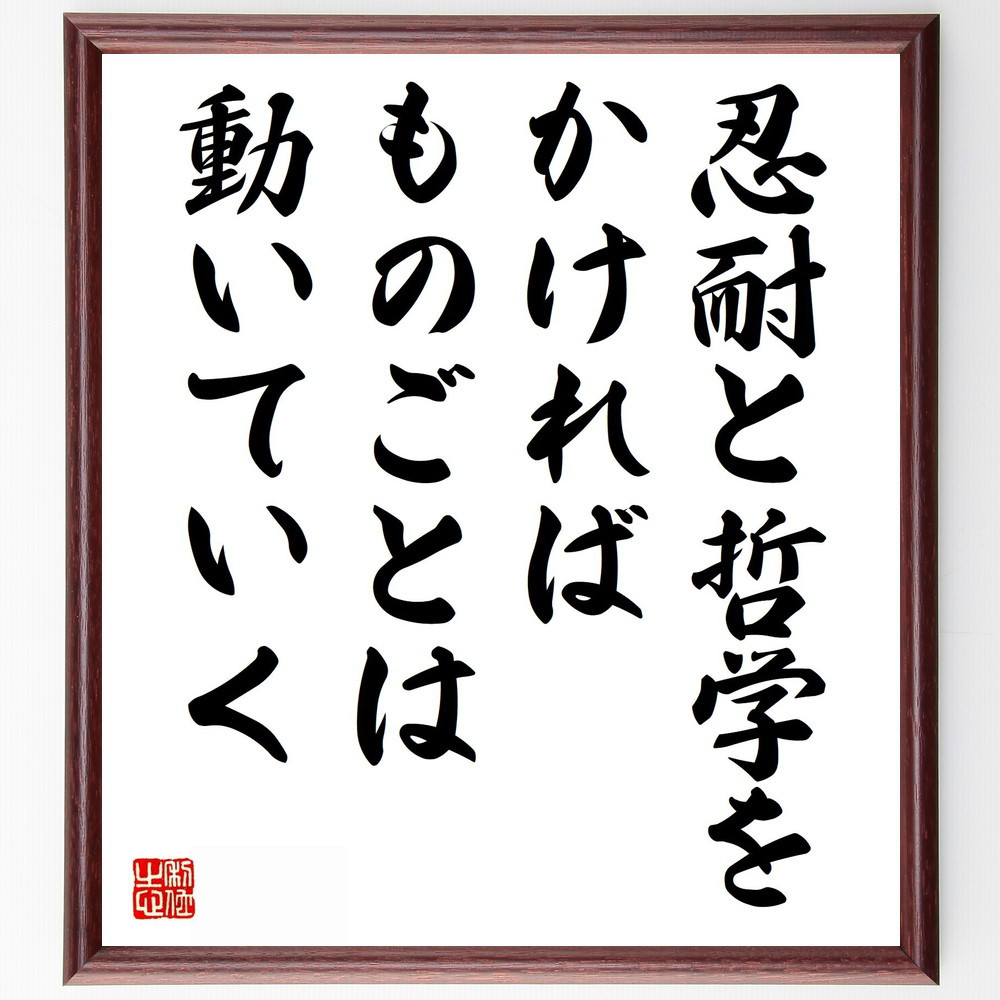 忍耐と哲学を
かければ
ものごとは
動いていく